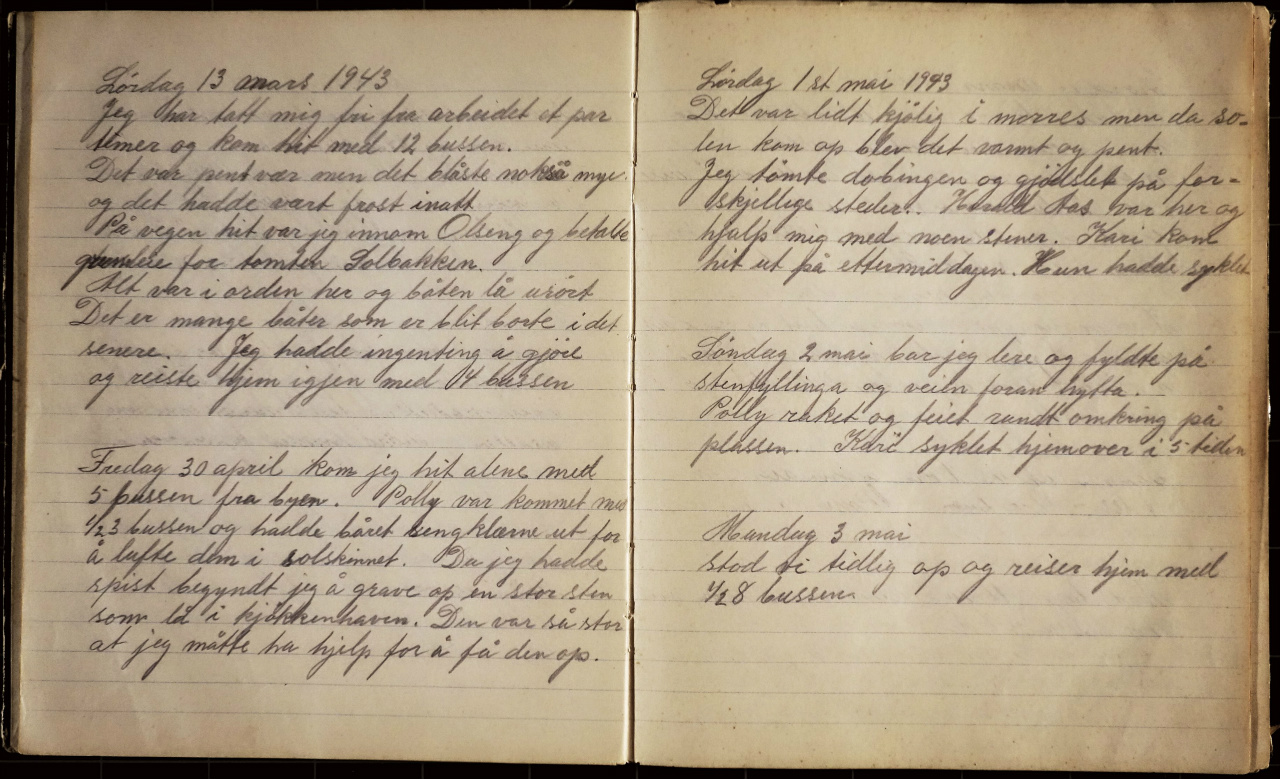 Lördag 13 mars 1943
Jeg har tatt mig fri fra arbeidet et par
timer og kom hit med 12 bussen.
Det var pent vær men det blåste nokså mye
og det hadde vært frost inatt
På vegen hit var jeg innom Olseng og betalte
for tomten Solbakken.
Alt var i orden her og båten lå urört
Det er mange båter som er blit borte i det
senere. Jeg hadde ingenting å gjöre
og reiste hjem igjen med 4 bussen
Fredag 30 april kom jeg hit alene med
5 bussen fra byen. Polly var kommet med
1/2 3 bussen og hadde båret sengklærne ut for
å lufte dem i solskinnet. Da jeg hadde
spist begyndt jeg å grave op en stor sten
som lå i kjökkenhaven. Den var så stor
at jeg måtte ha hjelp for å få den op.
Lördag 1st mai 1943
Det var lidt kjölig i morres men da so-
len kom op blev det varmt og pent.
Jeg tömte dobingen og gjödslet på for-
skjellige steder. Harald Aas var her og
hjalp mig med noen stener. Kari kom
hit ut på ettermiddagen. Hun hadde syklet
Söndag 2 mai bar jeg lere og fyldte på
stenfyllinga og veien foran hytta.
Polly raket og feiet rundt omkring på
plassen. Kari syklet hjemover i 5 tiden
Mandag 3 mai
stod vi tidlig op og reiser hjem med
1/2 8 bussen.